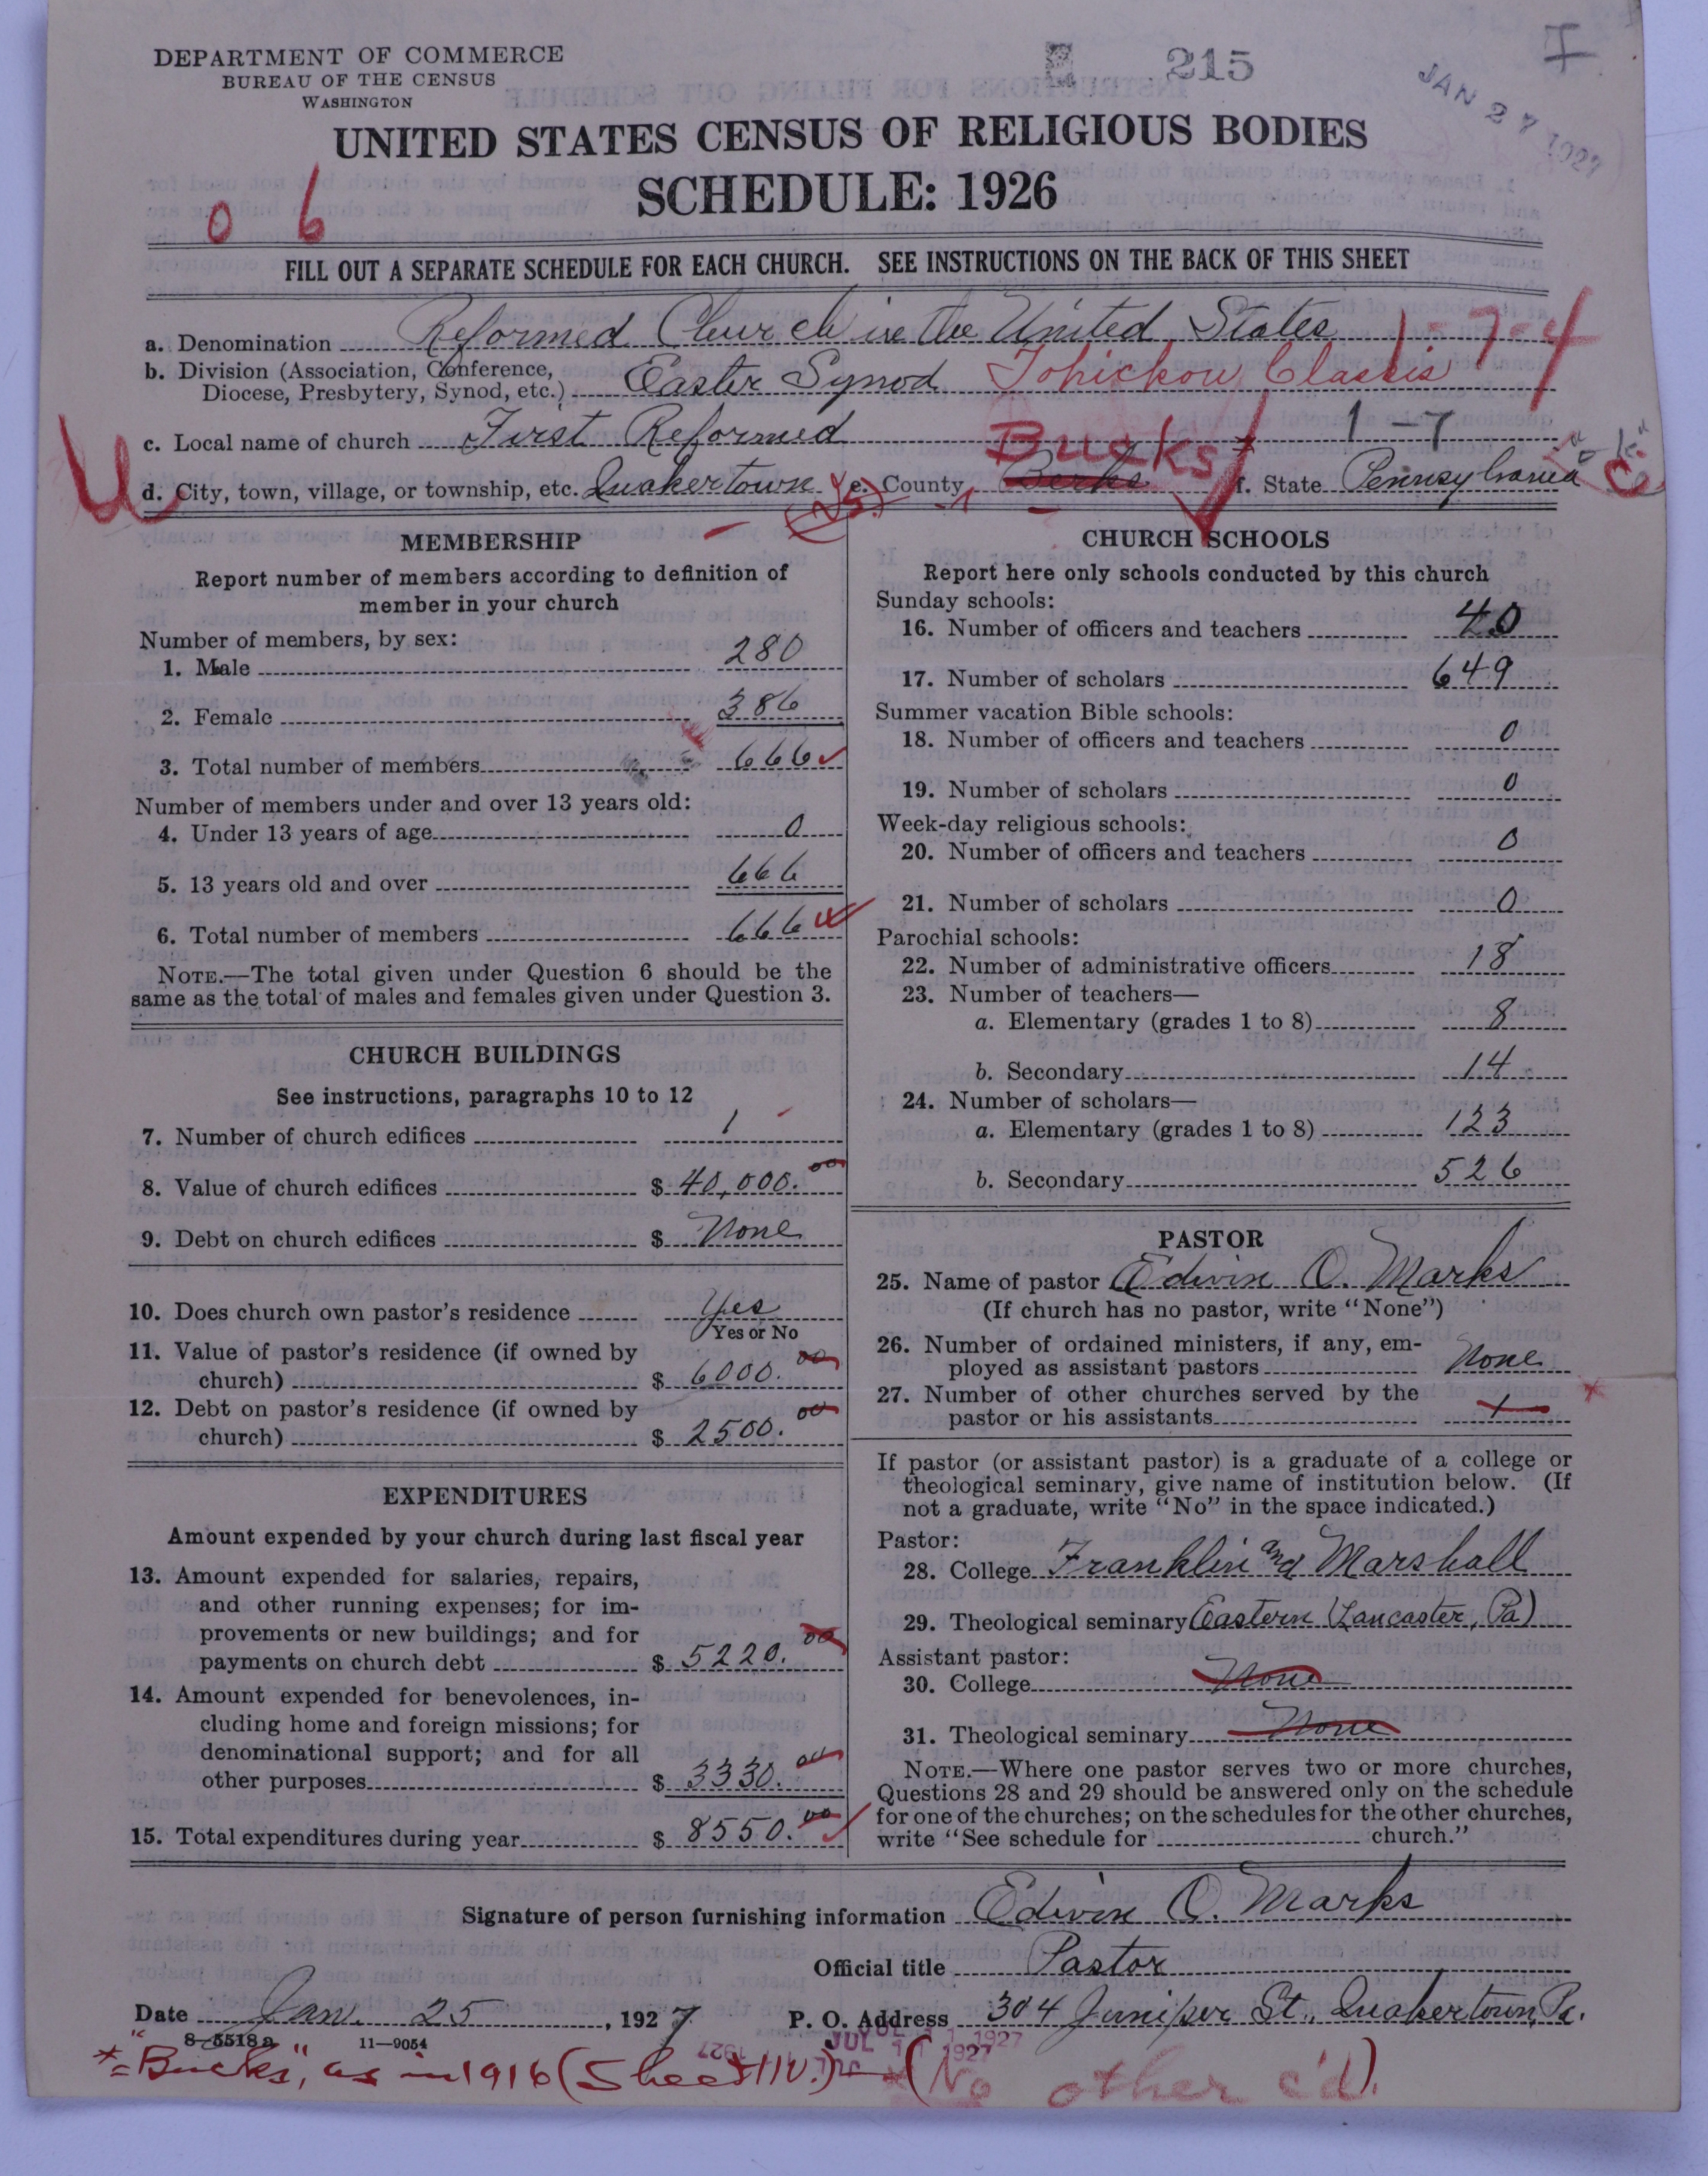 DEPARTMENT OF COMMERCE
BUREAU OF THE CENSUS
WASHINGTON
215
JAN 27 1927
UNITED STATES CENSUS OF RELIGIOUS BODIES
SCHEDULE: 1926
0 6
FILL OUT A SEPARATE SCHEDULE FOR EACH CHURCH. SEE INSTRUCTIONS ON THE BACK OF THIS SHEET
a. Denomination Reformed Church in the United States 1-7-4
b. Division (Association, Conference, Diocese, Presbytery, Synod, etc.) Easter Synod Tohickon Classis
c. Local name of church First Reformed 1-7
Bucks
d. City, town, village, or township, etc. Quakertown e. County Berks f. State Pennsylvania
MEMBERSHIP
Report number of members according to definition of
member in your church
Number of members, by sex:
1. Male 280
2. Female 386
3. Total number of members 666
Number of members under and over 13 years old:
4. Under 13 years of age 0
5. 13 years old and over 666
6. Total number of members 666
NOTE.—The total given under Question 6 should be the
same as the total of males and females given under Question 3.
CHURCH BUILDINGS
See instructions, paragraphs 10 to 12
7. Number of church edifices 1
8. Value of church edifices $ 40,000.00
9. Debt on church edifices $ None
10. Does church own pastor's residence Yes
Yes or No
11. Value of pastor's residence (if owned by
church) $ 6000.00
12. Debt on pastor's residence (if owned by
church) $ 2500.00
EXPENDITURES
Amount expended by your church during last fiscal year
13. Amount expended for salaries, repairs,
and other running expenses; for im-
provements or new buildings; and for
payments on church debt $ 5220.00
14. Amount expended for benevolences, in-
cluding home and foreign missions; for
denominational support; and for all
other purposes $ 3330.00
15. Total expenditures during year $ 8550.00
CHURCH SCHOOLS
Report here only schools conducted by this church
Sunday schools:
16. Number of officers and teachers 40
17. Number of scholars 649
Summer vacation Bible schools:
18. Number of officers and teachers 0
19. Number of scholars 0
Week-day religious schools:
20. Number of officers and teachers 0
21. Number of scholars 0
Parochial schools:
22. Number of administrative officers 18
23. Number of teachers—
a. Elementary (grades 1 to 8) 8
b. Secondary 14
24. Number of scholars—
a. Elementary (grades 1 to 8) 123
b. Secondary 526
PASTOR
25. Name of pastor Edwin O. Marks
(If church has no pastor, write "None")
26. Number of ordained ministers, if any, em-
ployed as assistant pastors None
27. Number of other churches served by the
pastor or his assistants 1
If pastor (or assistant pastor) is a graduate of a college or
theological seminary, give name of institution below. (If
not a graduate, write "No" in the space indicated.)
Pastor:
28. College Franklin and Marshall
29. Theological seminary Eastern (Lancaster, Pa)
Assistant pastor:
30. College None
31. Theological seminary None
NOTE.—Where one pastor serves two or more churches,
Questions 28 and 29 should be answered only on the schedule
for one of the churches; on the schedules for the other churches,
write "See schedule for church."
Signature of person furnishing information Edwin O. Marks
Official title Pastor
Date Jan. 25, 1927 P. O. Address 304 Juniper St., Quakertown, Pa.
8-5518a 11—9054
JUL 11 1927
* = "Bucks," as in 1916 (Sheet 110.) * (No other c'd).